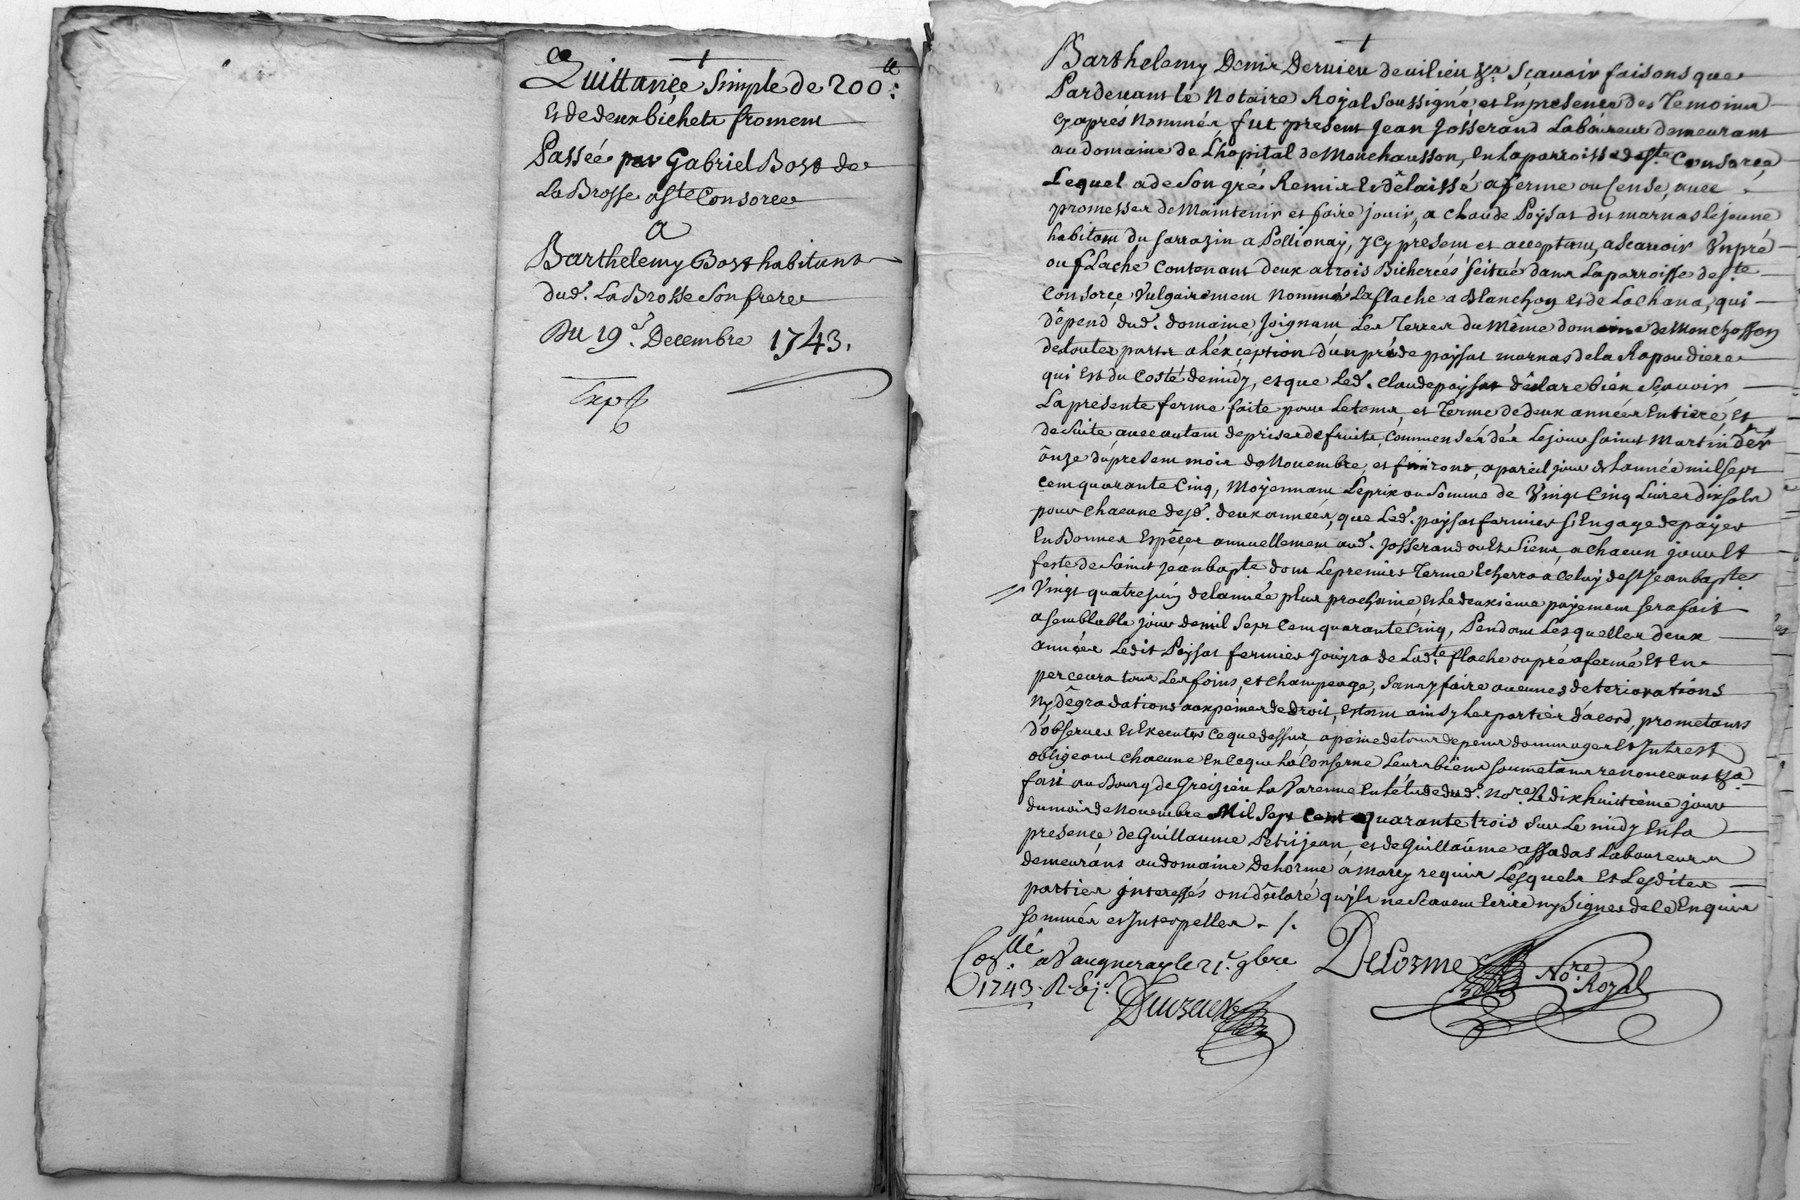 Quittançe simple de 200 ᵗᵗ:
Et de deux bichets froment
Passée par Gabriel Bost de
La Brosse a Ste Consorce
A
Barthelemy Bost habitant
dud. La Brosse son frere
Du 19e. Decembre 1743.
Expé
Barthelemy Denis Dervieu de vilieu &a Sçavoir faisons que
Pardevant le Notaire Royal soussigné et En presence des Temoins
cy après Nommés, fut present Jean Josserand Laboureur demeurant
au domaine de L'hopital de Monchausson, En la parroisse de ste. Consorce
Lequel a de son gré Remis et délaissé a ferme ou cense, avec
promesses de Maintenir et faire jouir, a Claude Poysat dit marnas le jeune
habitant du sarrazin a Pollionay, Icy present et acceptant, a scavoir Un pré
ou flache contenant deux a trois Bicherées scitué dans La parroisse de ste.
Consorce Vulgairement Nommé La flache a Blanchon et de La chana, qui
dépend dud. domaine, Joignant Les Terres du Même domaine de Monchosson
de toutes parts a l'éxception d'un pré de paysat marnas de la Rapoudiere
qui Est du Costé de midy, et que Led. Claude paysat déclare bien sçavoir
La presente ferme faite pour Le tems, et Terme de deux années Entieré, Et
de suite avec autant de prises de fruits, Commensés dés Le jour saint Martin dér
ônze du present mois de Novembre, et finiront, a pareil jour de L'année mil sept
cent quarante Cinq, Moyennant Le prix ou somme de Vingt Cinq Livres dix sols
pour chacune desd. deux années, que Led. paysat fermier s'Engage de payer
En Bonnes Espéces annuellement aud. Josserand ou Es siens, a chacun jour Et
feste de saint Jean bapte. dont Le premier Terme Echerra a Celuy de st Jean bapte.
Vingt quatre juin de L'année plus prochaine, et Le deuxieme payement sera fait
a semblable jour de mil sept cent quarante Cinq, Pendant Lesquelles deux
années Ledit Paysat fermier Jouyra de Ladte. flache ou pré afermé Et En
percevra tous Les foins, et champeage, sans y faire aucunes deteriorations
Ny dégradations aux peines de droit, Estant ainsy Les parties d'acord, prometants
d'observer Et Executer ce que dessus a peine de tous depens dommages Et Intrest
obligeant chacune En ce que La Conserne Leurs biens soumetans renonceants &a.
fait au Bourg de Greizieu La Varenne En L'étude dud. Nore. Le dixhuitième jour
du mois de Novembre Mil Sept Cent quarante trois sur Le midy En La
presence de Guillaume Petitjean, et de Guillaûme assadas Laboureurs
demeurans au domaine Delorme a Marcy requis Lesquels Et Lesdites
parties interessés ont déclaré qu'ils ne sçavent Ecrire ny signer de ce Enquis
sommés et Interpellés -/.
Conllé a Vaugneray le 21e. 9bre
1743
Delorme Nore. Royal